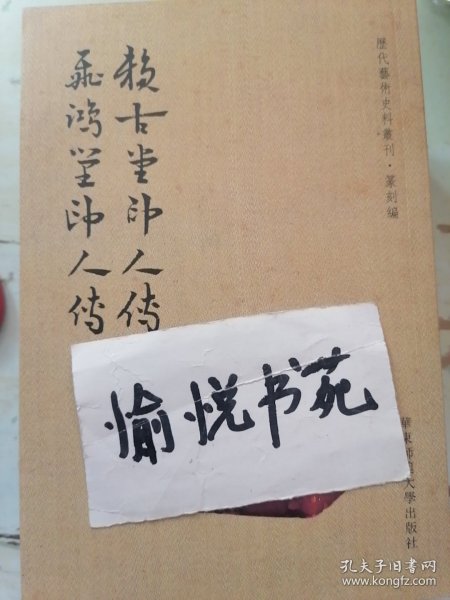 歷代藝術史料叢刊·篆刻編
賴古堂印人傳
飛鴻堂印人傳
愉悦书苑
華東師範大學出版社
孔夫子旧书网
www.kongfz.com